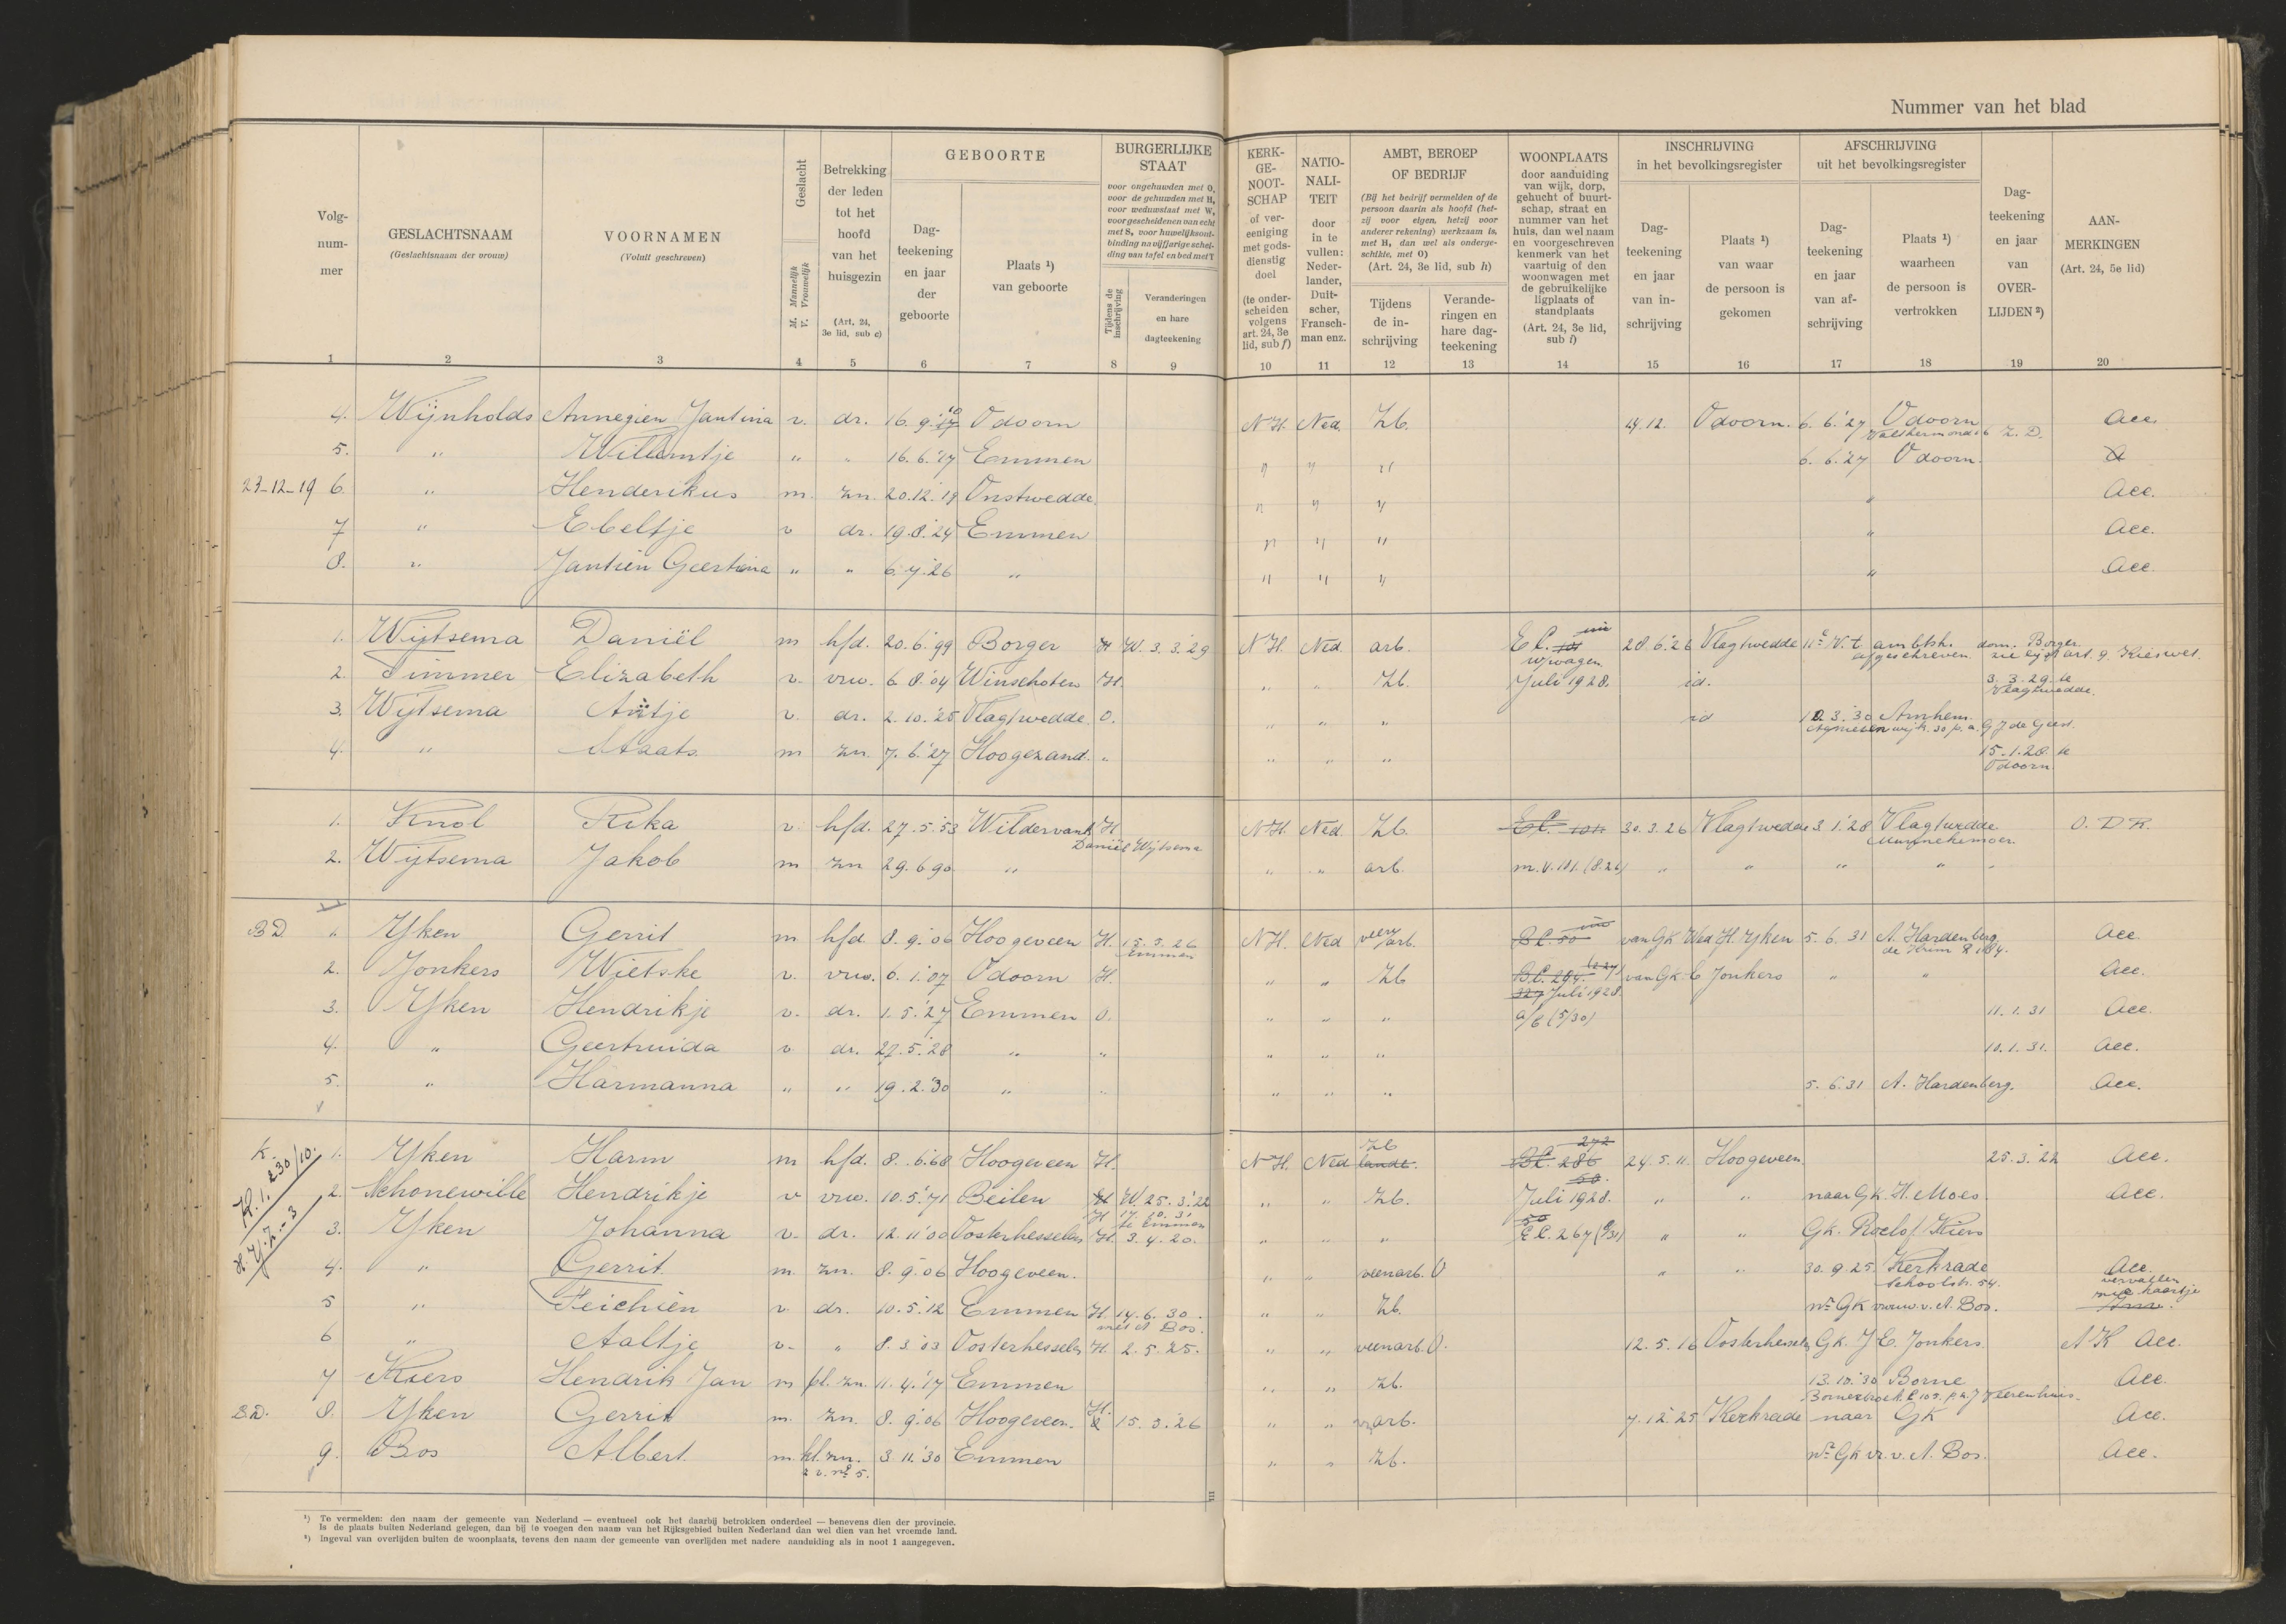 Nummer van het blad
Volg-nummer
GESLACHTSNAAM
(Geslachtsnaam der vrouw)
VOORNAMEN
(Voluit geschreven)
Geslacht
M. Mannelijk
V. Vrouwelijk
Betrekking der leden tot het hoofd van het huisgezin
(Art. 24, 3e lid, sub c)
GEBOORTE
Dag-teekening en jaar der geboorte
Plaats ¹) van geboorte
BURGERLIJKE STAAT
voor ongehuwden met O, voor de gehuwden met H, voor weduwstaat met W, voor gescheidenen van echt met S, voor huwelijksontbinding na vijfjarige scheiding van tafel en bed met T
Tijdens de inschrijving
Veranderingen en hare dagteekening
KERK-GE-NOOT-SCHAP
of vereeniging met godsdienstig doel
(te onderscheiden volgens art. 24, 3e lid, sub f)
NATIO-NALI-TEIT
door in te vullen: Nederlander, Duitscher, Franschman enz.
AMBT, BEROEP OF BEDRIJF
(Bij het bedrijf vermelden of de persoon daarin als hoofd (hetzij voor eigen, hetzij voor anderer rekening) werkzaam is, met H, dan wel als ondergeschikte, met O)
(Art. 24, 3e lid, sub h)
Tijdens de inschrijving
Veranderingen en hare dagteekening
WOONPLAATS
door aanduiding van wijk, dorp, gehucht of buurtschap, straat en nummer van het huis, dan wel naam en voorgeschreven kenmerk van het vaartuig of den woonwagen met de gebruikelijke ligplaats of standplaats
(Art. 24, 3e lid, sub i)
INSCHRIJVING in het bevolkingsregister
Dag-teekening en jaar van inschrijving
Plaats ¹) van waar de persoon is gekomen
AFSCHRIJVING uit het bevolkingsregister
Dag-teekening en jaar van afschrijving
Plaats ¹) waarheen de persoon is vertrokken
Dag-teekening en jaar van OVERLIJDEN ²)
AANMERKINGEN
(Art. 24, 5e lid)
1 2 3 4 5 6 7 8 9 10 11 12 13 14 15 16 17 18 19 20
4. Wijnholds Annegien Jantina v. dr. 16.9.'17 10 Odoorn N.H. Ned. Zb. 14.12. Odoorn. 6.6.'27 Odoorn Z.D. Acc.
5. " Willemtje " " 16.6.'17 Emmen " " " 6.6.'27 Odoorn.
23-12-19 6. " Henderikus m. zn. 20.12.'19 Onstwedde. " " " " Acc.
7 " Ebeltje v dr. 19.8.'24 Emmen " " " " Acc.
8. " Jantien Geertina " " 6.7.'26 " " " " " Acc.
1. Wijtsema Daniël m hfd. 20.6.'99 Borger H W. 3.3.'29 N.H. Ned. arb. E C. 101 w/wagen 28.6.'26 Vlagtwedde afgeschreven dom. Borger art. 9. Kieswet.
2. Timmer Elizabeth v. vrw. 6.8.04 Winschoten H. " " Zb. Juli 1928. id. 3.3.29. te Vlagtwedde.
3. Wijtsema Antje v. dr. 2.10.'25 Vlagtwedde. O. " " " id 12.3.'30 Arnhem G J de Geest.
4. " Staats m zn. 7.6.'27 Hoogezand. " " " " 15.1.28. te Odoorn
1. Knol Rika v. hfd. 27.5.'53 Wildervank H. Daniël Wijtsema N.H. Ned. Zb. E C. 101 30.3.26 Vlagtwedde 3.1.'28 Vlagtwedde Munnekemoer. O. D R.
2. Wijtsema Jakob m zn 29.6.90. " " " arb. m.v. 101. (8.26) " " " "
B D. 1. Yken Gerrit m hfd 8.9.'06 Hoogeveen H. 15.5.26 Emmen N.H. Ned veen arb. B C. 50 van GK Wed H. Yken 5.6.31 A. Hardenberg Acc
2. Jonkers Wietske v. vrw. 6.1.'07 Odoorn H. " " Zb B C. 294. 327 Juli 1928. van GK. E Jonkers " " Acc.
3. Yken Hendrikje v. dr. 1.5.'27 Emmen O. " " " a/C (5/30) 11.1.31 Acc.
4. " Geertruida v. dr. 27.5.'28 " " " " " 10.1.31. Acc.
5. " Harmanna " " 19.2.'30 " " " " " 5.6.31 A. Hardenberg. Acc.
K. K.1.230/10. 1. Yken Harm m hfd. 8.6.'68 Hoogeveen H. N.H. Ned Zb landb. B C. 286 272 50. 24.5.11. Hoogeveen. 25.3.22 Acc.
H.Y.Z.-3 2. Schonewille Hendrikje v vrw. 10.5.'71 Beilen W 25.3.'22 H 17.10.31 te Emmen " " Zb. Juli 1928. " " naar GK H. Moes. Acc.
3. Yken Johanna v. dr. 12.11.'00 Oosterhesselen H. 3.4.20. " " " 50 E C. 267 " " GK. Roelof Kiers
4. " Gerrit m. zn. 8.9.06 Hoogeveen. " " veenarb. O " " 30.9.25 Kerkrade Schoolstr. 54. Acc.
5 " Feichien v. dr. 10.5.'12 Emmen H. 14.6.30. met A Bos. " " Zb. nr. GK vrouw v. A. Bos. vervallen kaartje
6 " Aaltje v. " 8.3.'03 Oosterhesselen H. 2.5.25. " " veenarb. O. 12.5.16 Oosterhesselen GK. J E. Jonkers A K Acc.
7 Kiers Hendrik Jan m pl. zn. 11.4.'17 Emmen " " Zb. 13.10.'30 Borne Acc.
B D. 8. Yken Gerrit m. zn. 8.9.'06 Hoogeveen. H. 15.5.'26 " " arb. 7.12.25 Kerkrade naar GK Acc.
9. Bos Albert m. kl. zn. 3.11.'30 Emmen " " Zb. nr. GK vr. v. A. Bos. Acc.
¹) Te vermelden: den naam der gemeente van Nederland — eventueel ook het daarbij betrokken onderdeel — benevens dien der provincie.
Is de plaats buiten Nederland gelegen, dan bij te voegen den naam van het Rijksgebied buiten Nederland dan wel dien van het vreemde land.
²) Ingeval van overlijden buiten de woonplaats, tevens den naam der gemeente van overlijden met nadere aanduiding als in noot 1 aangegeven.
III